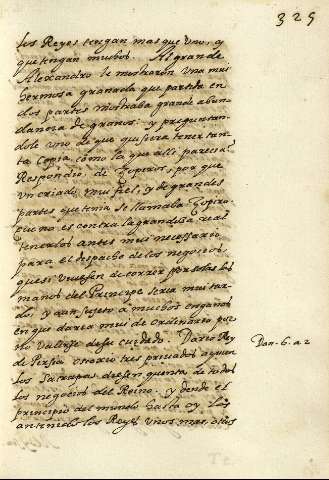 325
los Reyes tengan mas que uno, y
que tengan muchos. Al grande
Alexandro le mostraron una mui
hermosa granada que partida en
dos partes mostraba grande abun
dancia de granos: y preguntan
dole uno de que quisiera tener tan
ta copia como la que alli parecia?
Respondio, de Zopiros, por que
un criado mui fiel, y de grandes
partes que tenia se llamaba Zopiro.
que no es contra la grandesa real
tenerlos antes mui necessario
para el despacho de los negocios.
que si vuiesen de correr por solas las
manos del Principe seria mui tar
do, y aun sujeto a muchos engaños
en que daria mui de ordinario, por
no valerse de su cuidado. Dario Rey
de Persia
Dan. 6. a 2
tres privados a quien
los Satrapas diesen quenta de todos
los negocios del Reino. y desde el
principio del mundo hasta oy los
an tenido los Reyes unos mas, otros